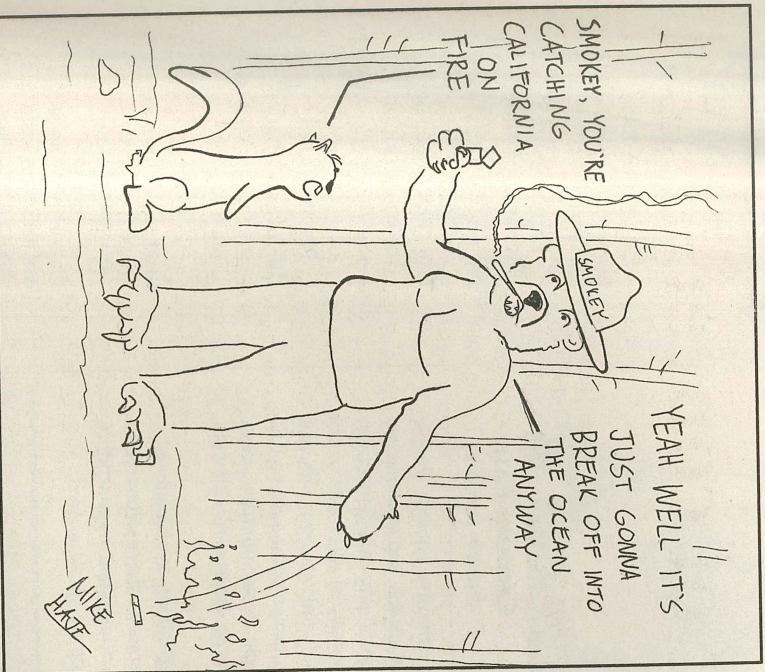 SMOKEY, YOU'RE
CATCHING
CALIFORNIA
ON
FIRE
SMOKEY
YEAH WELL IT'S
JUST GONNA
BREAK OFF INTO
THE OCEAN
ANYWAY
MIKE